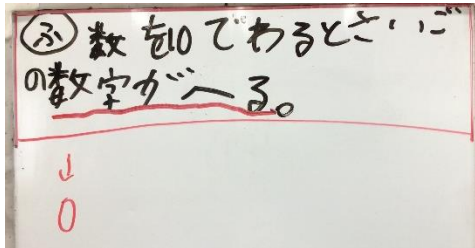 ふ 数を10でわるとさいご
の数字がへる。
↓
0